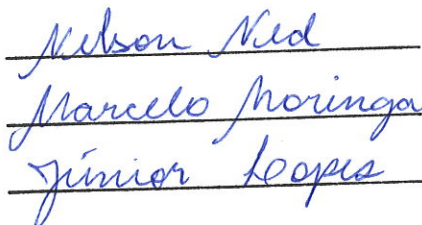 Nelson Ned
Marcelo Moringa
Júnior Lopes